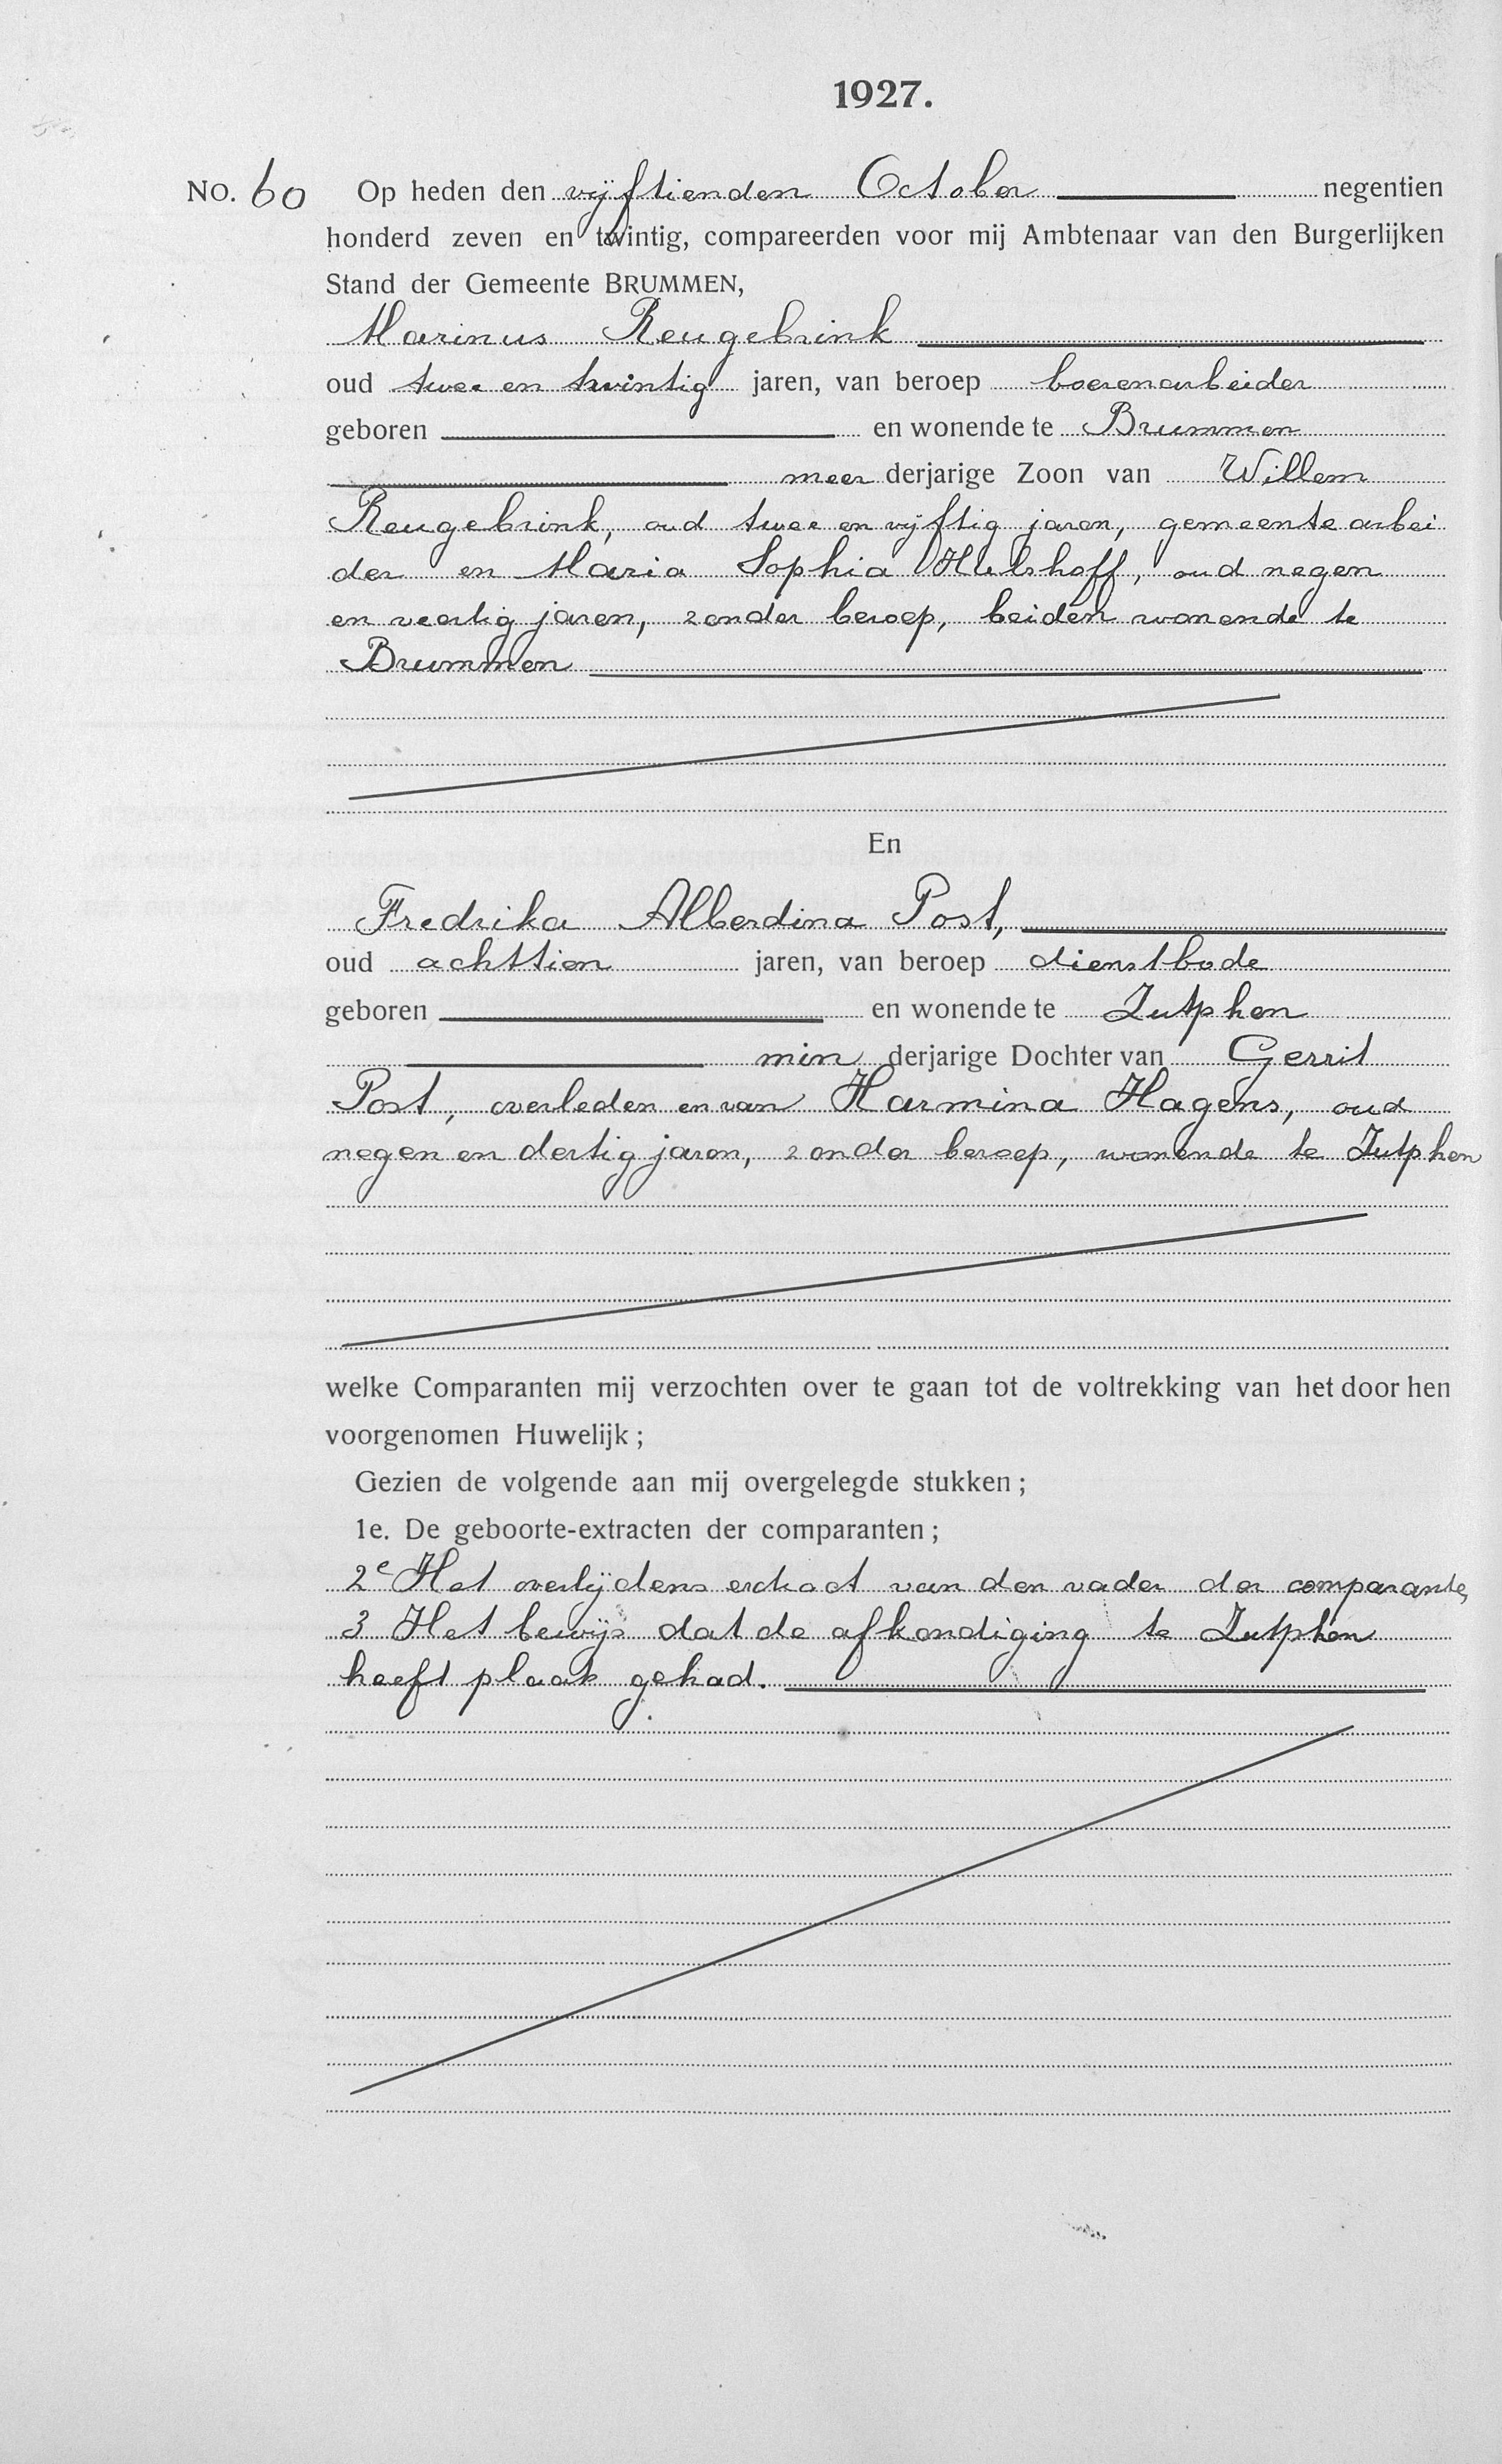 1927.
No. 60 Op heden den vijftienden October negentien
honderd zeven en twintig, compareerden voor mij Ambtenaar van den Burgerlijken
Stand der Gemeente BRUMMEN,
Marinus Reugebrink
oud twee en twintig jaren, van beroep boerenarbeider
geboren en wonende te Brummen
meer derjarige Zoon van Willem
Reugebrink, oud twee en vijftig jaren, gemeente arbei
der en Maria Sophia Hulshoff, oud negen
en veertig jaren, zonder beroep, beiden wonende te
Brummen
En
Fredrika Alberdina Post,
oud achttien jaren, van beroep dienstbode
geboren en wonende te Zutphen
min derjarige Dochter van Gerrit
Post, overleden en van Harmina Hagens, oud
negen en dertig jaren, zonder beroep, wonende te Zutphen
welke Comparanten mij verzochten over te gaan tot de voltrekking van het door hen
voorgenomen Huwelijk;
Gezien de volgende aan mij overgelegde stukken;
1e. De geboorte-extracten der comparanten;
2e Het overlijdens extract van den vader der comparante,
3 Het bewijs dat de afkondiging te Zutphen
heeft plaats gehad.